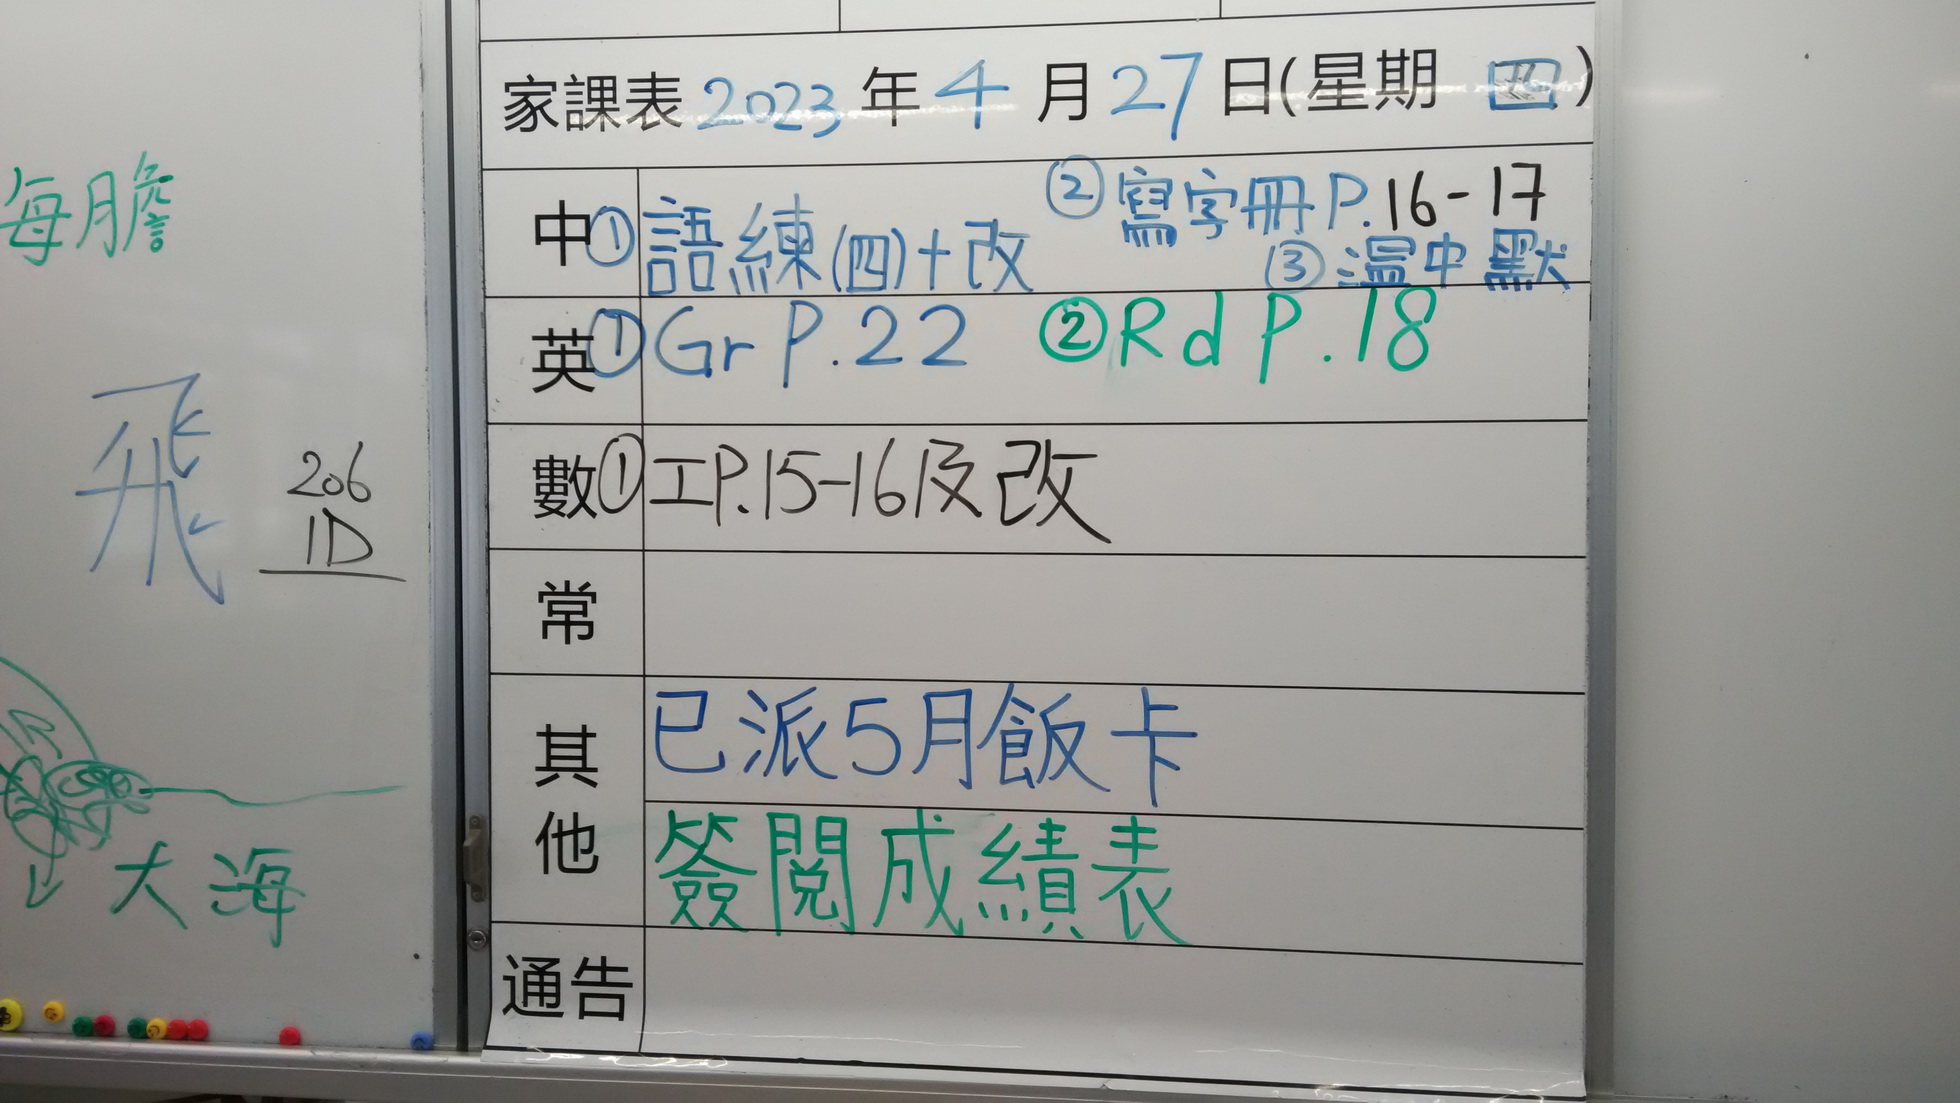 每膽
飛
206
1D
大海
家課表 2023 年 4 月 27 日(星期 四)
中 ① 語練(四)+改 ② 寫字冊 P.16-17
③ 溫中默
英 ① Gr P.22 ② Rd P.18
數 ① 工P.15-16及改
常
其他 已派5月飯卡
簽閱成績表
通告